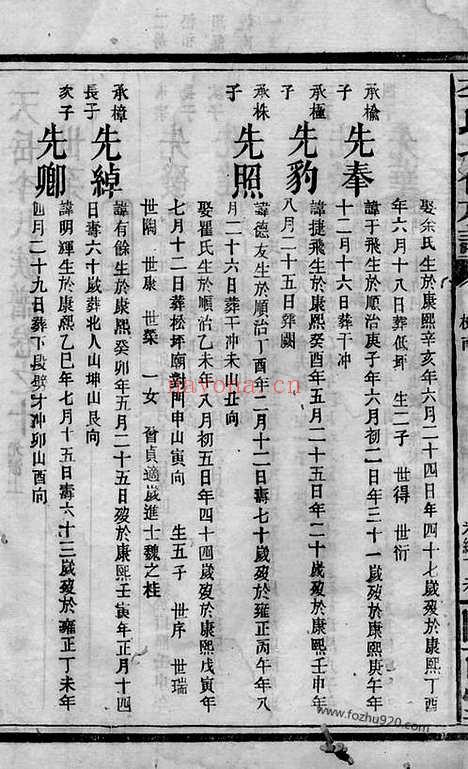 娶余氏生於康熙辛亥年六月二十四日年四十七歲歿於康熙丁酉
年六月十八日葬低坪 生二子 世得 世衍
承榆子
先奉
諱于飛生於順治庚子年六月初二日年三十一歲歿於康熙庚午年
十二月十六日葬干冲
承極子
先豹
諱捷飛生於康熙癸酉年五月二十五日年二十歲歿於康熙壬申年
八月二十五日葬闕
承株子
先照
諱德友生於順治丁酉年二月十二日壽七十歲歿於雍正丙午年八
月二十六日葬干冲未山丑向
娶瞿氏生於順治乙未年八月初五日年四十四歲歿於康熙戊寅年
七月十二日葬松坪廟對門申山寅向 生五子 世序 世瑞
世陶 世康 世榮 一女 督貞適歲進士魏之桂
承樟長子
先綽
諱有餘生於康熙癸卯年五月二十五日歿於康熙壬寅年正月十四
日壽六十歲葬北人山坤山艮向
次子
先卿
諱明輝生於康熙乙巳年七月十五日壽六十三歲歿於雍正丁未年
四月二十九日葬下段劈才冲卯山酉向
nayona.cn
www.fozhu920.com